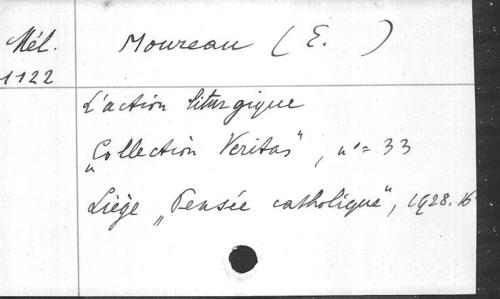 Mél. Moureau (E. )
1122
L'action liturgique
„Collection Veritas", n°= 33
Liège „Pensée catholique", 1928. 16